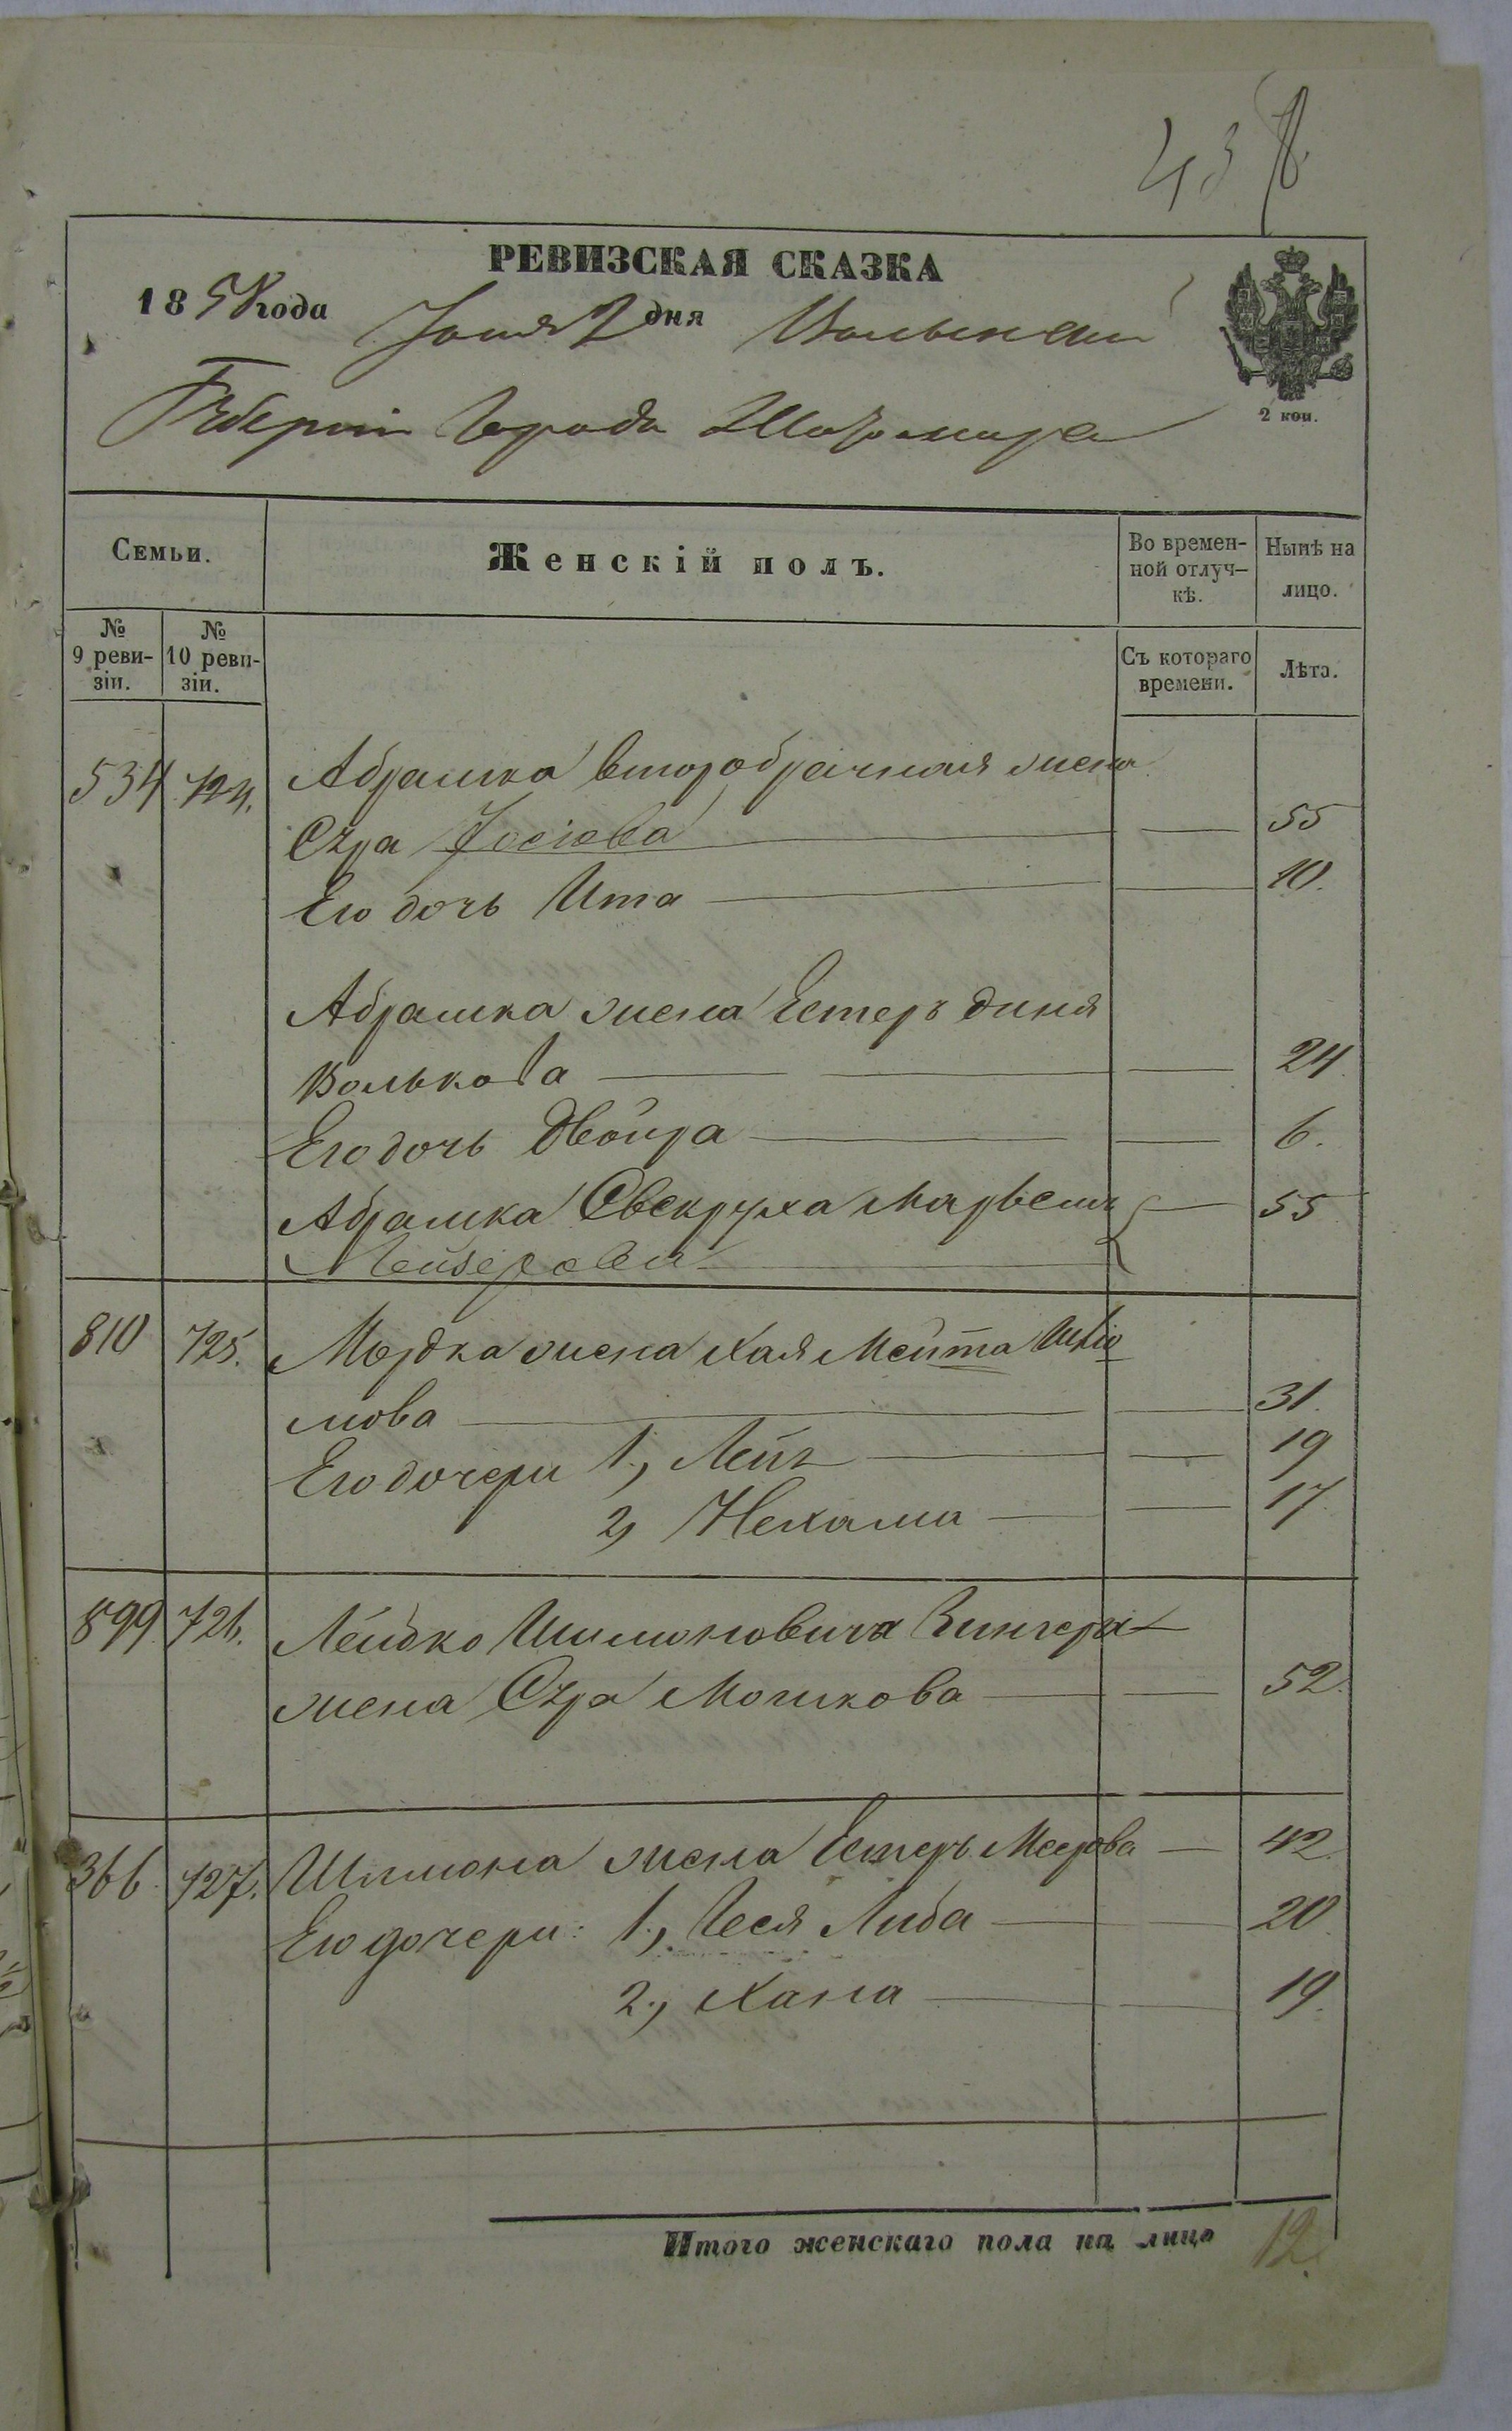 43
РЕВИЗСКАЯ СКАЗКА
1858 года Іюня 2 дня Волынской
Губерніи Города Житомира
2 коп.
Семьи.
Женскій полъ.
Во времен-
ной отлуч-
кѣ.
Нынѣ на
лицо.
№
9 реви-
зіи.
№
10 реви-
зіи.
Съ котораго
времени.
Лѣта.
534 724. Абрамка второбрачная жена
Сура Іосіова 55
Его дочь Ита 10.
Абрамка жена Естеръ Диня
Волькова 24
Его дочь Двойра 6.
Абрамка Свекруха 55
Мейзерова
810 725. Мордка жена Хая Мейта
мова 31.
Его дочери 1., Лея 19
2, Нехама 17
899 726. Лейбко Шимоновича Зингера
жена Сура Мошкова 52.
366. 727. Шимона жена Естеръ Меерова 42.
Его дочери: 1., Песя Либа 20
2., Хана 19.
Итого женскаго пола на лицо 12.